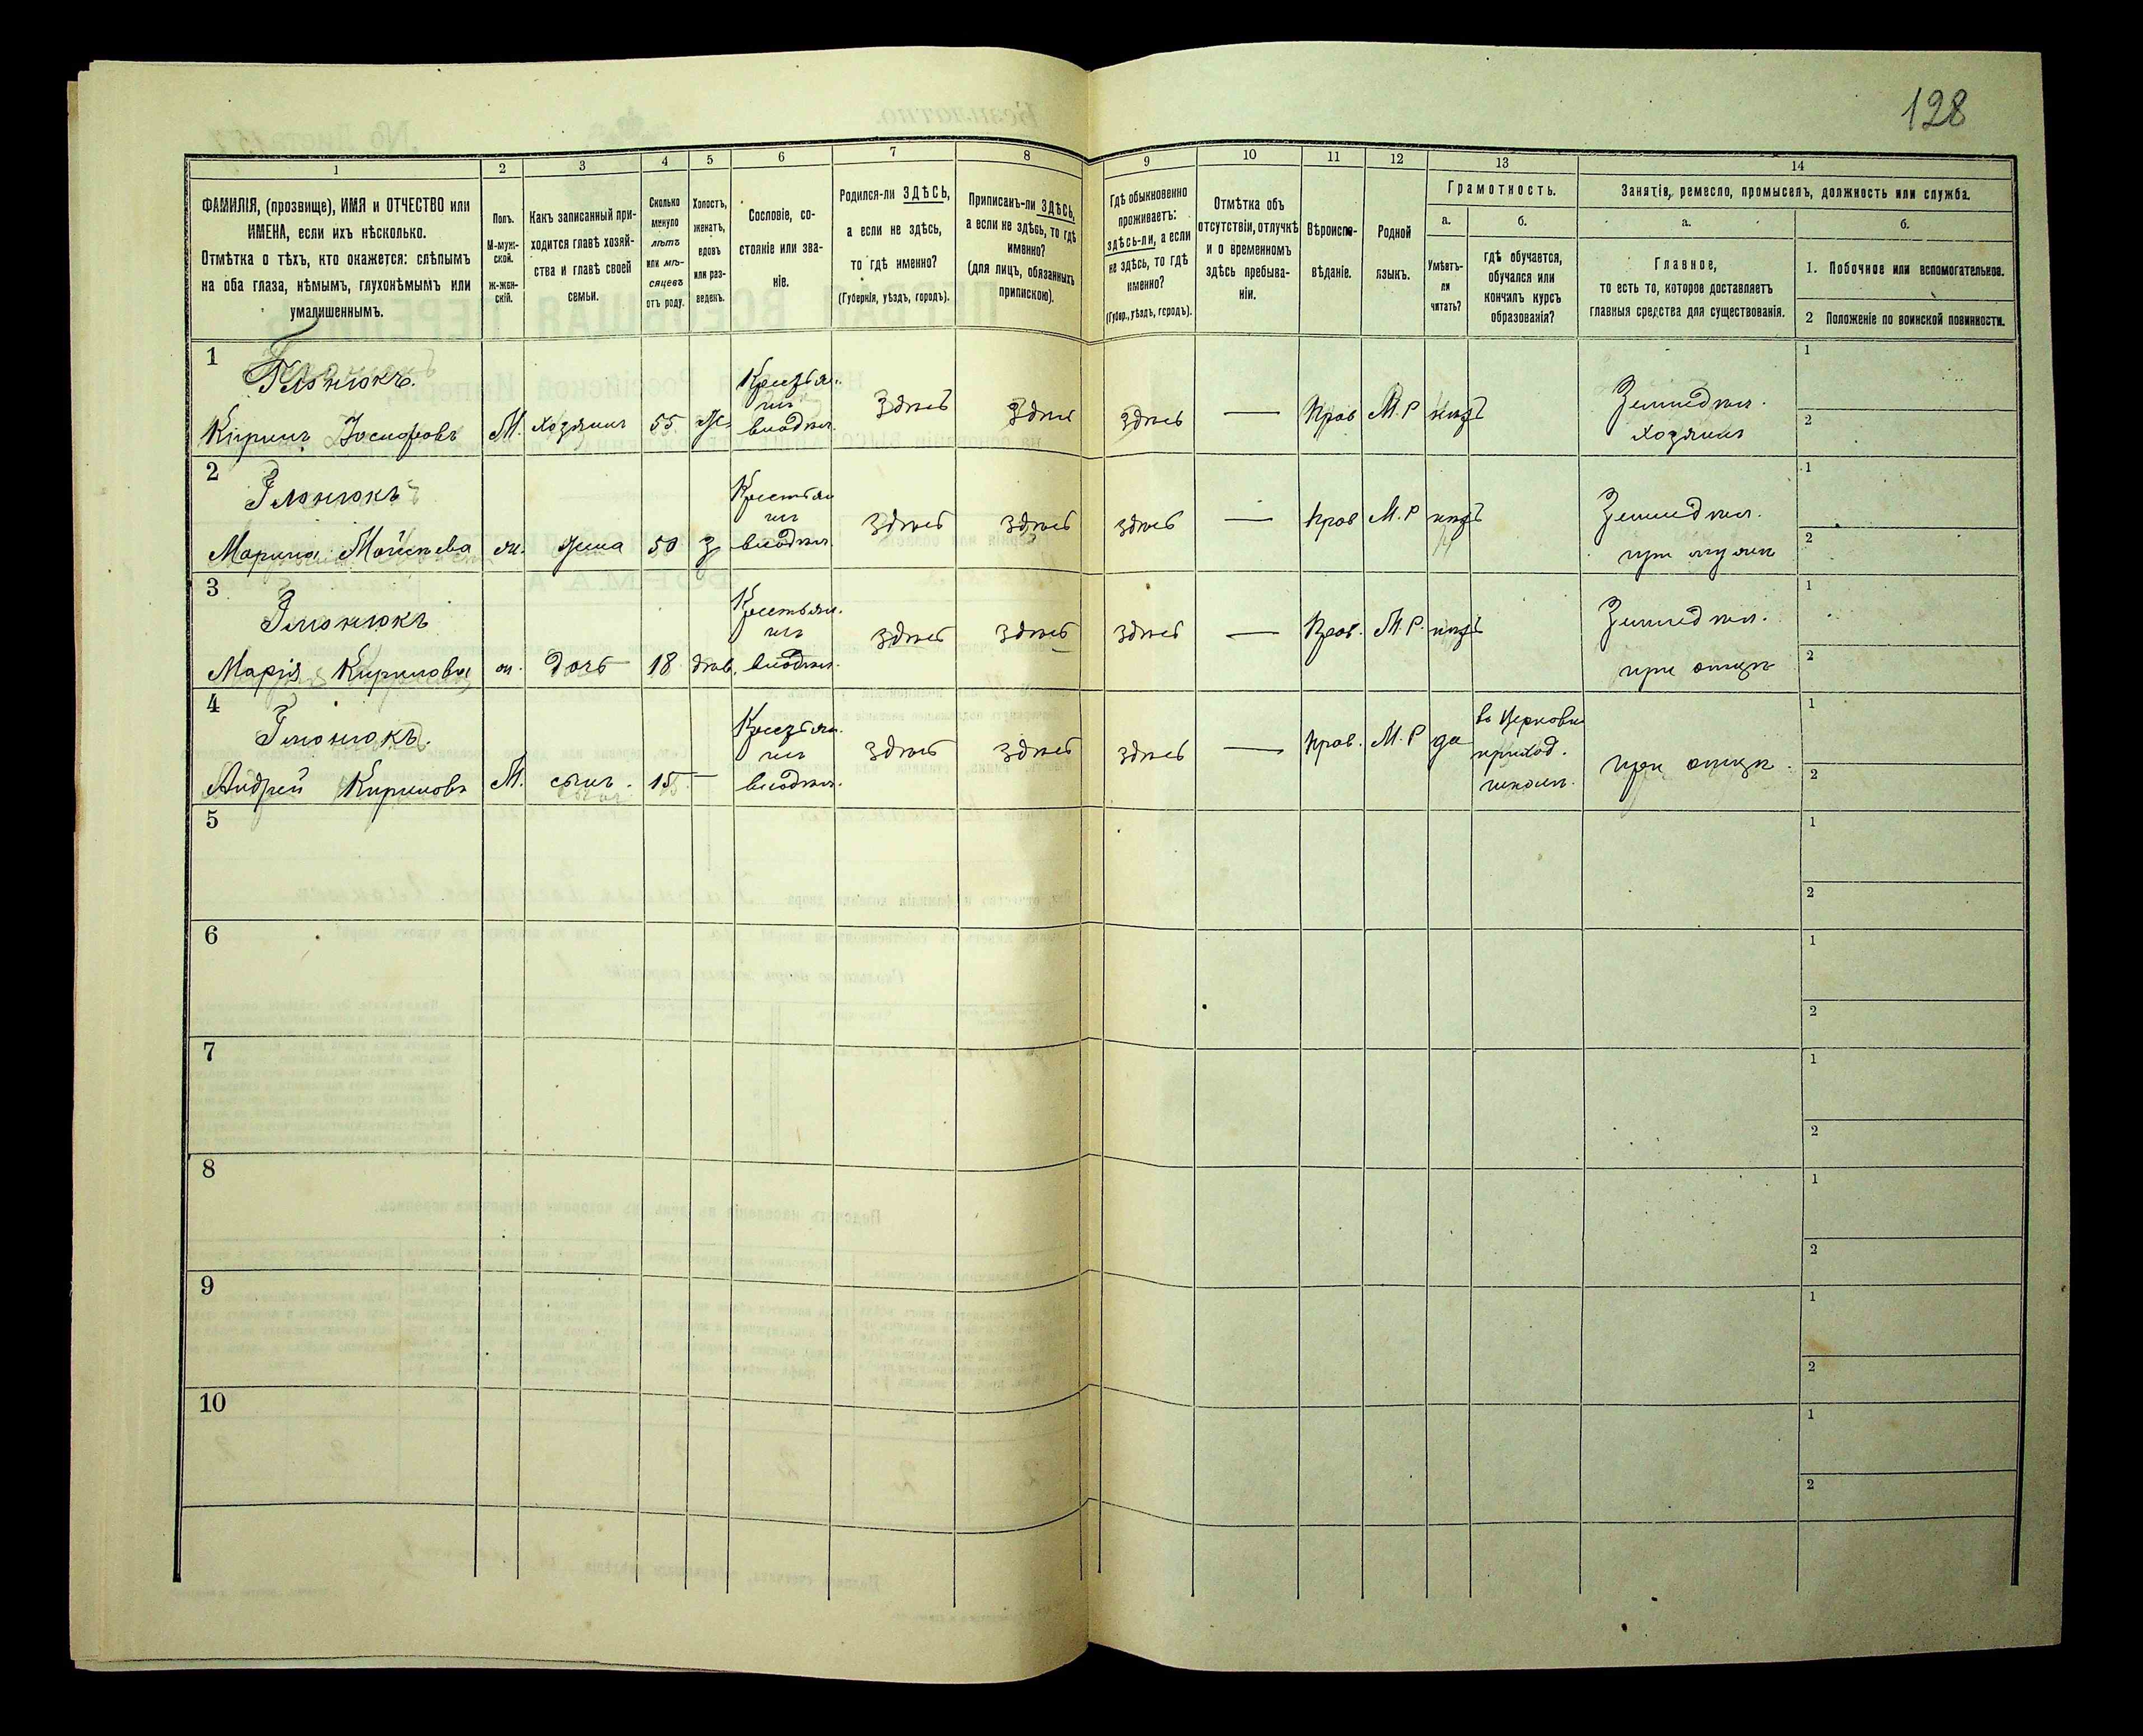 128
1
2
3
4
5
6
7
8
9
10
11
12
13
14
ФАМИЛІЯ, (прозвище), ИМЯ и ОТЧЕСТВО или
ИМЕНА, если ихъ нѣсколько.
Отмѣтка о тѣхъ, кто окажется: слѣпымъ
на оба глаза, нѣмымъ, глухонѣмымъ или
умалишеннымъ.
Полъ.
М-муж-
ской.
Ж-жен-
скій.
Какъ записанный при-
ходится главѣ хозяй-
ства и главѣ своей
семьи.
Сколько
минуло
лѣтъ
или мѣ-
сяцевъ
отъ роду.
Холостъ,
женатъ,
вдовъ
или раз-
веденъ.
Сословіе, со-
стояніе или зва-
ніе.
Родился-ли ЗДѢСЬ,
а если не здѣсь,
то гдѣ именно?
(Губернія, уѣздъ, городъ).
Приписанъ-ли ЗДѢСЬ,
а если не здѣсь, то гдѣ
именно?
(для лицъ, обязанныхъ
припискою).
Гдѣ обыкновенно
проживаетъ:
здѣсь-ли, а если
не здѣсь, то гдѣ
именно?
(Губер., уѣздъ, городъ).
Отмѣтка объ
отсутствіи, отлучкѣ
и о временномъ
здѣсь пребыва-
ніи.
Вѣроиспо-
вѣданіе.
Родной
языкъ.
Грамотность.
а.
Умѣетъ-
ли
читать?
б.
гдѣ обучается,
обучался или
кончилъ курсъ
образованія?
Занятіе, ремесло, промыселъ, должность или служба.
а.
Главное,
то есть то, которое доставляетъ
главныя средства для существованія.
б.
1. Побочное или вспомогательное.
2 Положеніе по воинской повинности.
1
Глонюкъ.
Кирилъ Іосифовъ М. хозяинъ 55 Ж.
Крестьян.
изъ
владѣл.
здѣсь здѣсь здѣсь — Прав М.Р нѣтъ
Земледѣл.
хозяинъ
1
2
2
Глонюкъ
Марина Моисѣева ж. жена 50 З
Крестьян
изъ
владѣл.
здѣсь здѣсь здѣсь — Прав М.Р нѣтъ
Земледѣл.
при мужѣ
1
2
3
Глонюкъ
Марія Кирилова ж. дочь 18 дѣв.
Крестьян.
изъ
владѣл.
здѣсь здѣсь здѣсь — Прав. М.Р. нѣтъ
Земледѣл.
при отцѣ
1
2
4
Глонюкъ.
Андрей Кириловъ М. сынъ. 15 —
Крестьян.
изъ
владѣл.
здѣсь здѣсь здѣсь — Прав. М.Р да
въ Церковн
приход.
школѣ.
при отцѣ.
1
2
5
1
2
6
1
2
7
1
2
8
1
2
9
1
2
10
1
2